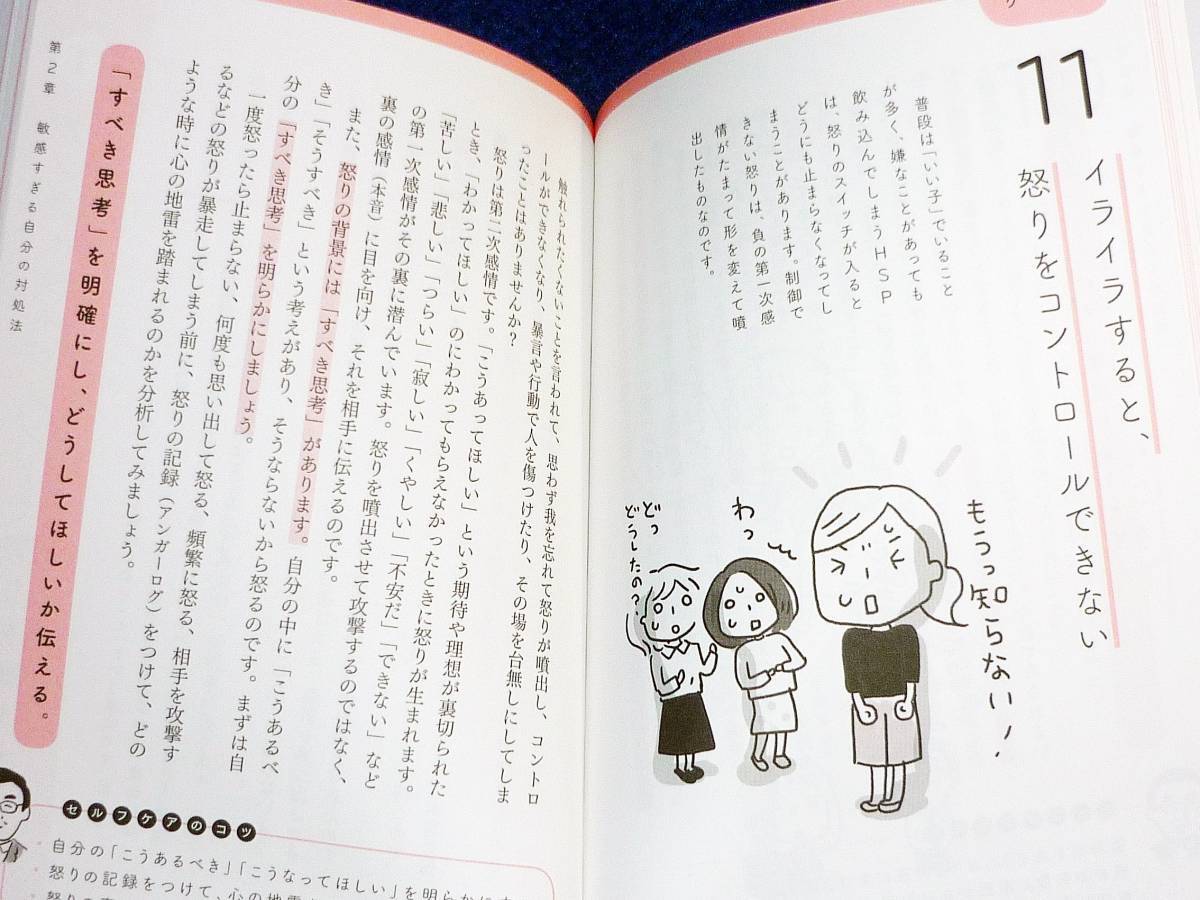 11
イライラすると、
怒りをコントロールできない
普段は「いい子」でいること
が多く、嫌なことがあっても
飲み込んでしまうHSP
は、怒りのスイッチが入ると
どうにも止まらなくなってし
まうことがあります。制御で
きない怒りは、負の第一次感
情がたまって形を変えて噴
出したものなのです。
もうっ知らない!
わっ
どっ
どうしたの?
触れられたくないことを言われて、思わず我を忘れて怒りが噴出し、コントロ
ールができなくなり、暴言や行動で人を傷つけたり、その場を台無しにしてしま
ったことはありませんか?
怒りは第二次感情です。「こうあってほしい」という期待や理想が裏切られた
とき、「わかってほしい」のにわかってもらえなかったときに怒りが生まれます。
「苦しい」「悲しい」「つらい」「寂しい」「くやしい」「不安だ」「できない」など
の第一次感情がその裏に潜んでいます。怒りを噴出させて攻撃するのではなく、
裏の感情(本音)に目を向け、それを相手に伝えるのです。
また、怒りの背景には「すべき思考」があります。自分の中に「こうあるべ
き」「そうすべき」という考えがあり、そうならないから怒るのです。まずは自
分の「すべき思考」を明らかにしましょう。
一度怒ったら止まらない、何度も思い出して怒る、頻繁に怒る、相手を攻撃す
るなどの怒りが暴走してしまう前に、怒りの記録(アンガーログ)をつけて、どの
ような時に心の地雷を踏まれるのかを分析してみましょう。
「すべき思考」を明確にし、どうしてほしいか伝える。
第2章 敏感すぎる自分の対処法
セルフケアのコツ
・自分の「こうあるべき」「こうなってほしい」を明らかにす
・怒りの記録をつけて、心の地雷
・怒りの